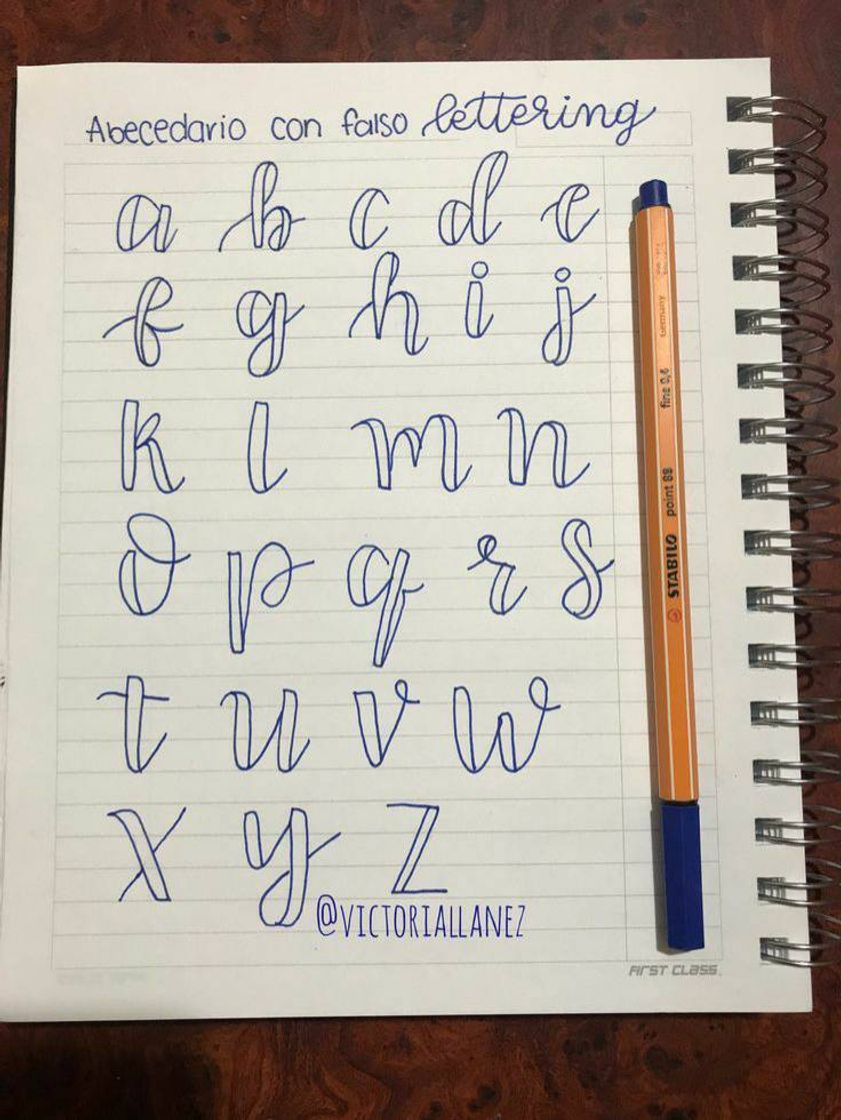 Abecedario con falso lettering
a b c d e
f g h i j
k l m n
o p q r s
t u v w
x y z
@VICTORIALLANEZ
FIRST CLASS
STABILO point 88 fine 0,4 Germany